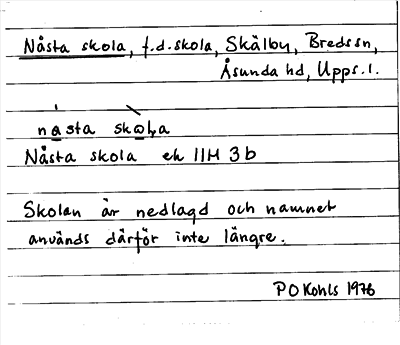 Nåsta skola, f.d. skola, Skälby, Bredssn,
Åsunda hd, Upps. l.
nås̀ta skọla
Nåsta skola ek 11H 3b
Skolan är nedlagd och namnet
används därför inte längre.
P O Kohls 1976